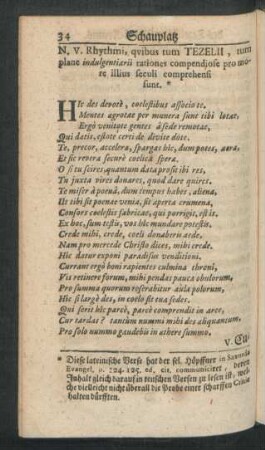 34 Schauplatz
N. V. Rhythmi, qvibus tum TEZELII, tum
plane indulgentiarii rationes compendiose pro mo-
re illius seculi comprehensi
sunt. *
HIc des devotè, coelestibus associo te.
Mentes agrotæ per munera sunt tibi lotæ,
Ergò venitote gentes à sede remotæ,
Qui datis, estote certi de divite dote.
Te, precor, accelera, spargas hîc, dum potes, æra,
Et sic revera securè coelicâ spera.
O si tu scires, quantum data prosit ibi res,
Tu juxta vires donares, quod dare quires.
Te miser à poenâ, dum tempus habes, aliena,
Ut tibi sit poenæ venia, sit aperta crumena,
Consors coelestis fabricæ, qui porrigis, est is.
Ex hoc, sum testis, vos hîc mundare potestis.
Crede mihi, crede, coeli donaberis æde.
Nam pro mercede Christo dices, mihi crede.
Hîc datur exponi paradisus venditioni,
Currant ergò boni rapientes culmina throni,
Vis retinere forum, mihi pendas pauca obolorum,
Pro summa quorum reserabitur aula polorum,
Hîc si largè des, in coelo sit tua sedes.
Qui serit hîc parcè, parcè comprendit in arce,
Cur tardas? tantum nummi mihi des aliquantum.
Pro solo nummo gaudebis in æthere summo.
V. Eu-
* Diese lateinische Verse hat der sel. Höpffner in
Evangel. p. 124. 125. ed. cit. communiciret, deren
Inhalt gleich daraus in teutschen Versen zu lesen ist, wel-
che vielleicht nicht überall die Probe einer scharffen
halten dürfften.